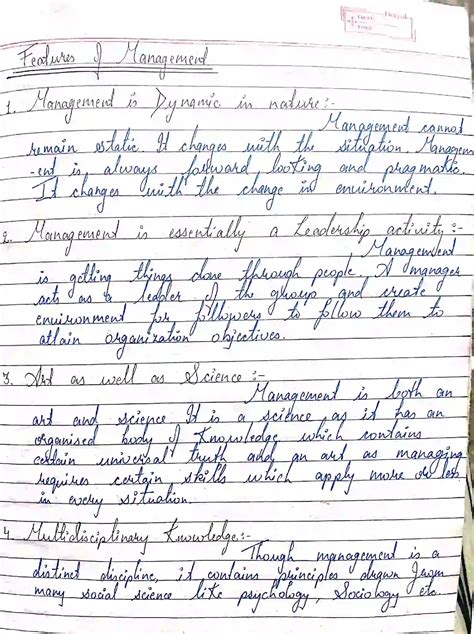 Features of Management
1. Management is Dynamic in nature:-
Management cannot
remain static. It changes with the situation. Managem
-ent is always forward looking and pragmatic.
It changes with the change in environment.
2. Management is essentially a Leadership activity:-
Management
is getting things done through people. A manager
act as a leader of the group and create
environment for followers to follow them to
attain organization objectives.
3. Art as well as Science:-
Management is both an
art and science. It is a science as it has an
organised body of Knowledge which contains
certain universal truth and an art as managing
requires certain skills which apply more or less
in every situation.
4. Multidisciplinary Knowledge:-
Though management is a
distinct discipline, it contains principles drawn from
many social science like psychology, Sociology etc.